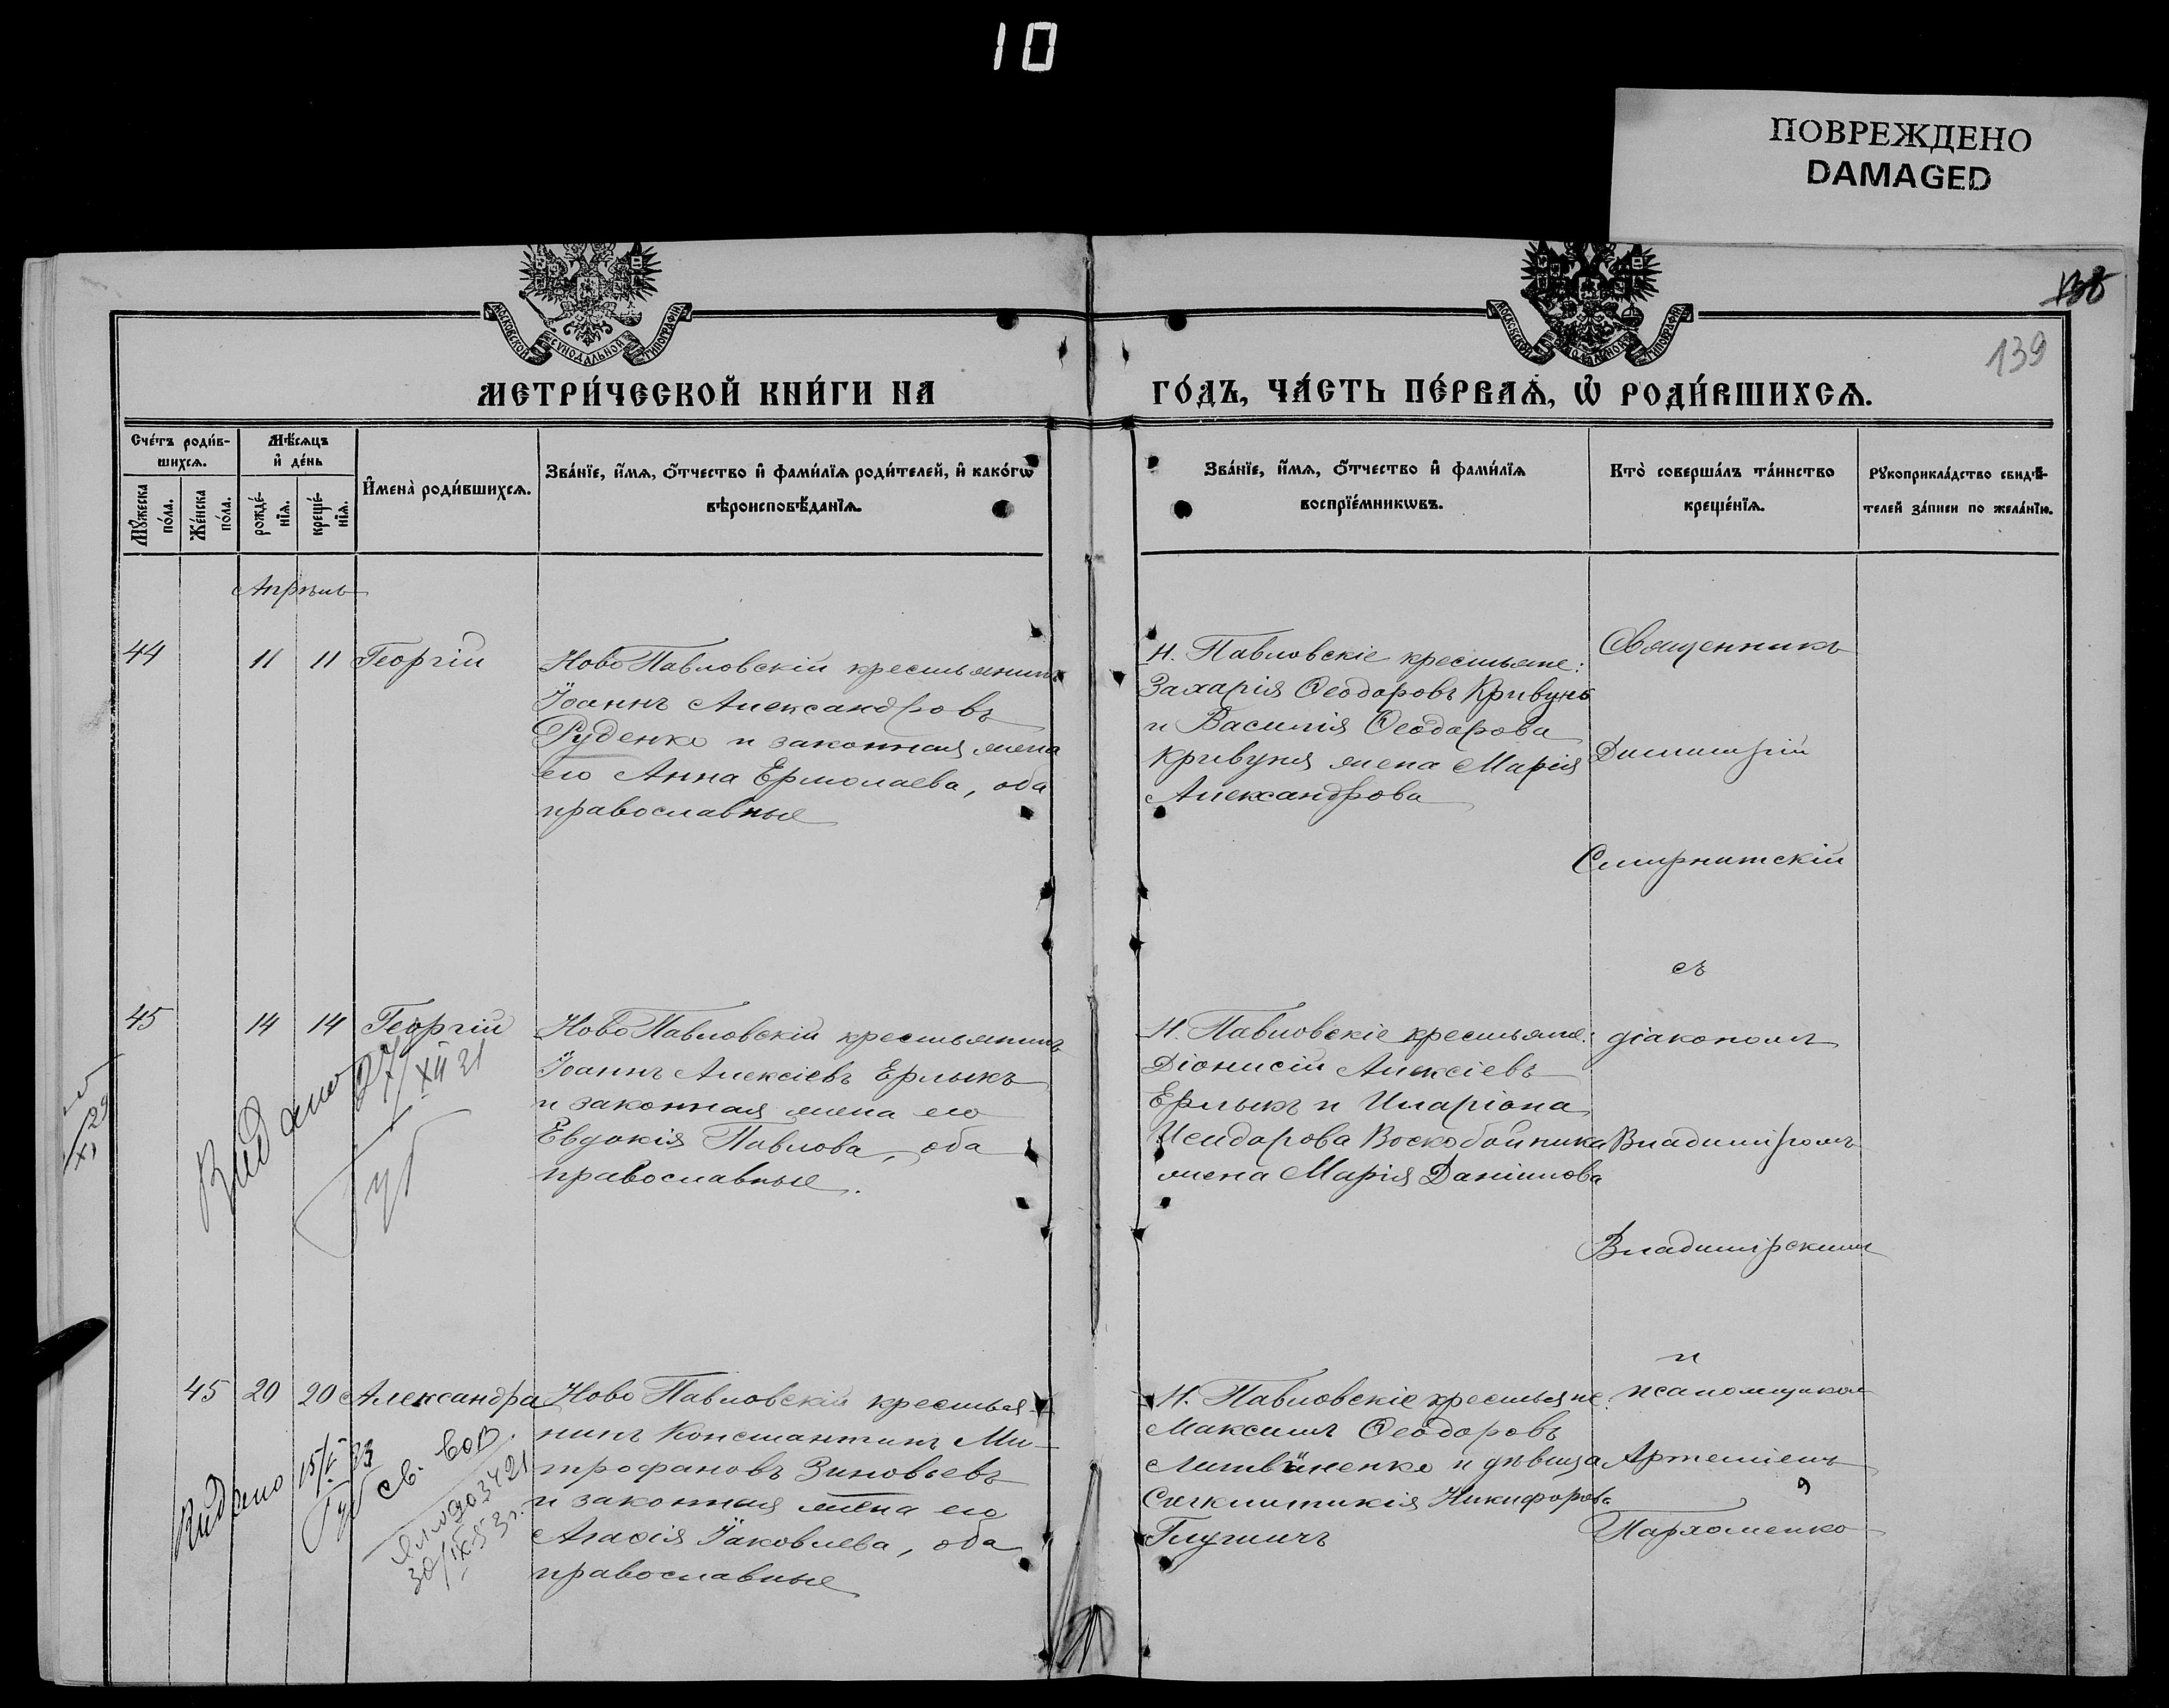 10
ПОВРЕЖДЕНО
DAMAGED
138
139
МОСКОВСКОЙ СѴНОДАЛЬНОЙ ТИПОГРАФІИ
МОСКОВСКОЙ СѴНОДАЛЬНОЙ ТИПОГРАФІИ
МЕТРИ́ЧЕСКОЙ КНИ́ГИ НА
ГО́ДЪ, ЧА́СТЬ ПЕ́РВАѦ, Ѿ РОДИ́ВШИХСѦ.
Сче́тъ роди́в-
шихсѧ.
Мꙋ́жеска
по́ла.
Же́нска
по́ла.
Мѣ́сѧцъ
и҆ де́нь
рожде́-
нїѧ.
креще́-
нїѧ.
И҆мена̀ роди́вшихсѧ.
Зва́нїе, и҆́мѧ, ѻ҆́тчество и҆ фами́лїѧ роди́телей, и҆ како́гѡ
вѣроисповѣ́данїѧ.
Зва́нїе, и҆́мѧ, ѻ҆́тчество и҆ фами́лїѧ
воспрїе́мникѡвъ.
Кто̀ соверша́лъ та́инство
креще́нїѧ.
Рꙋкоприкла́дство свидѣ́-
телей за́писи по жела́нїю.
Апрѣль
44
11
11
Георгій
Ново Павловскій крестьянинъ
Іоаннъ Александровъ
Руденко и законная жена
его Анна Ермолаева, оба
православные
Н. Павловскіе крестьяне:
Захарія Ѳеодоровъ Кривуня
и Василія Ѳеодорова
Кривуня жена Марія
Александрова
Священникъ
Димитрій
Смирнитскій
съ
45
14
14
Георгій
Ново Павловскій крестьянинъ
Іоаннъ Алексіевъ Ерлыкъ
и законная жена его
Евдокія Павлова, оба
православные.
Н. Павловскіе крестьяне:
Діонисій Алексіевъ
Ерлыкъ и Иларіона
Исидорова Воскобойника
жена Марія Даніилова
діакономъ
Владиміромъ
Владимірскимъ
и
Видано 27/XII 21
29
XI
45
20
20
Александра
Ново Павловскій крестья-
нинъ Константинъ Ми-
трофановъ Зиновьевъ
и законная жена его
Агафія Іаковлева, оба
православные
Н. Павловскіе крестьяне:
Максимъ Ѳеодоровъ
Литвиненко и дѣвица
Никифорова
псаломщикомъ
Артеміемъ
Пархоменко
Видано 15/V 23
св. ЕОВ
903421
30/IX-53г.